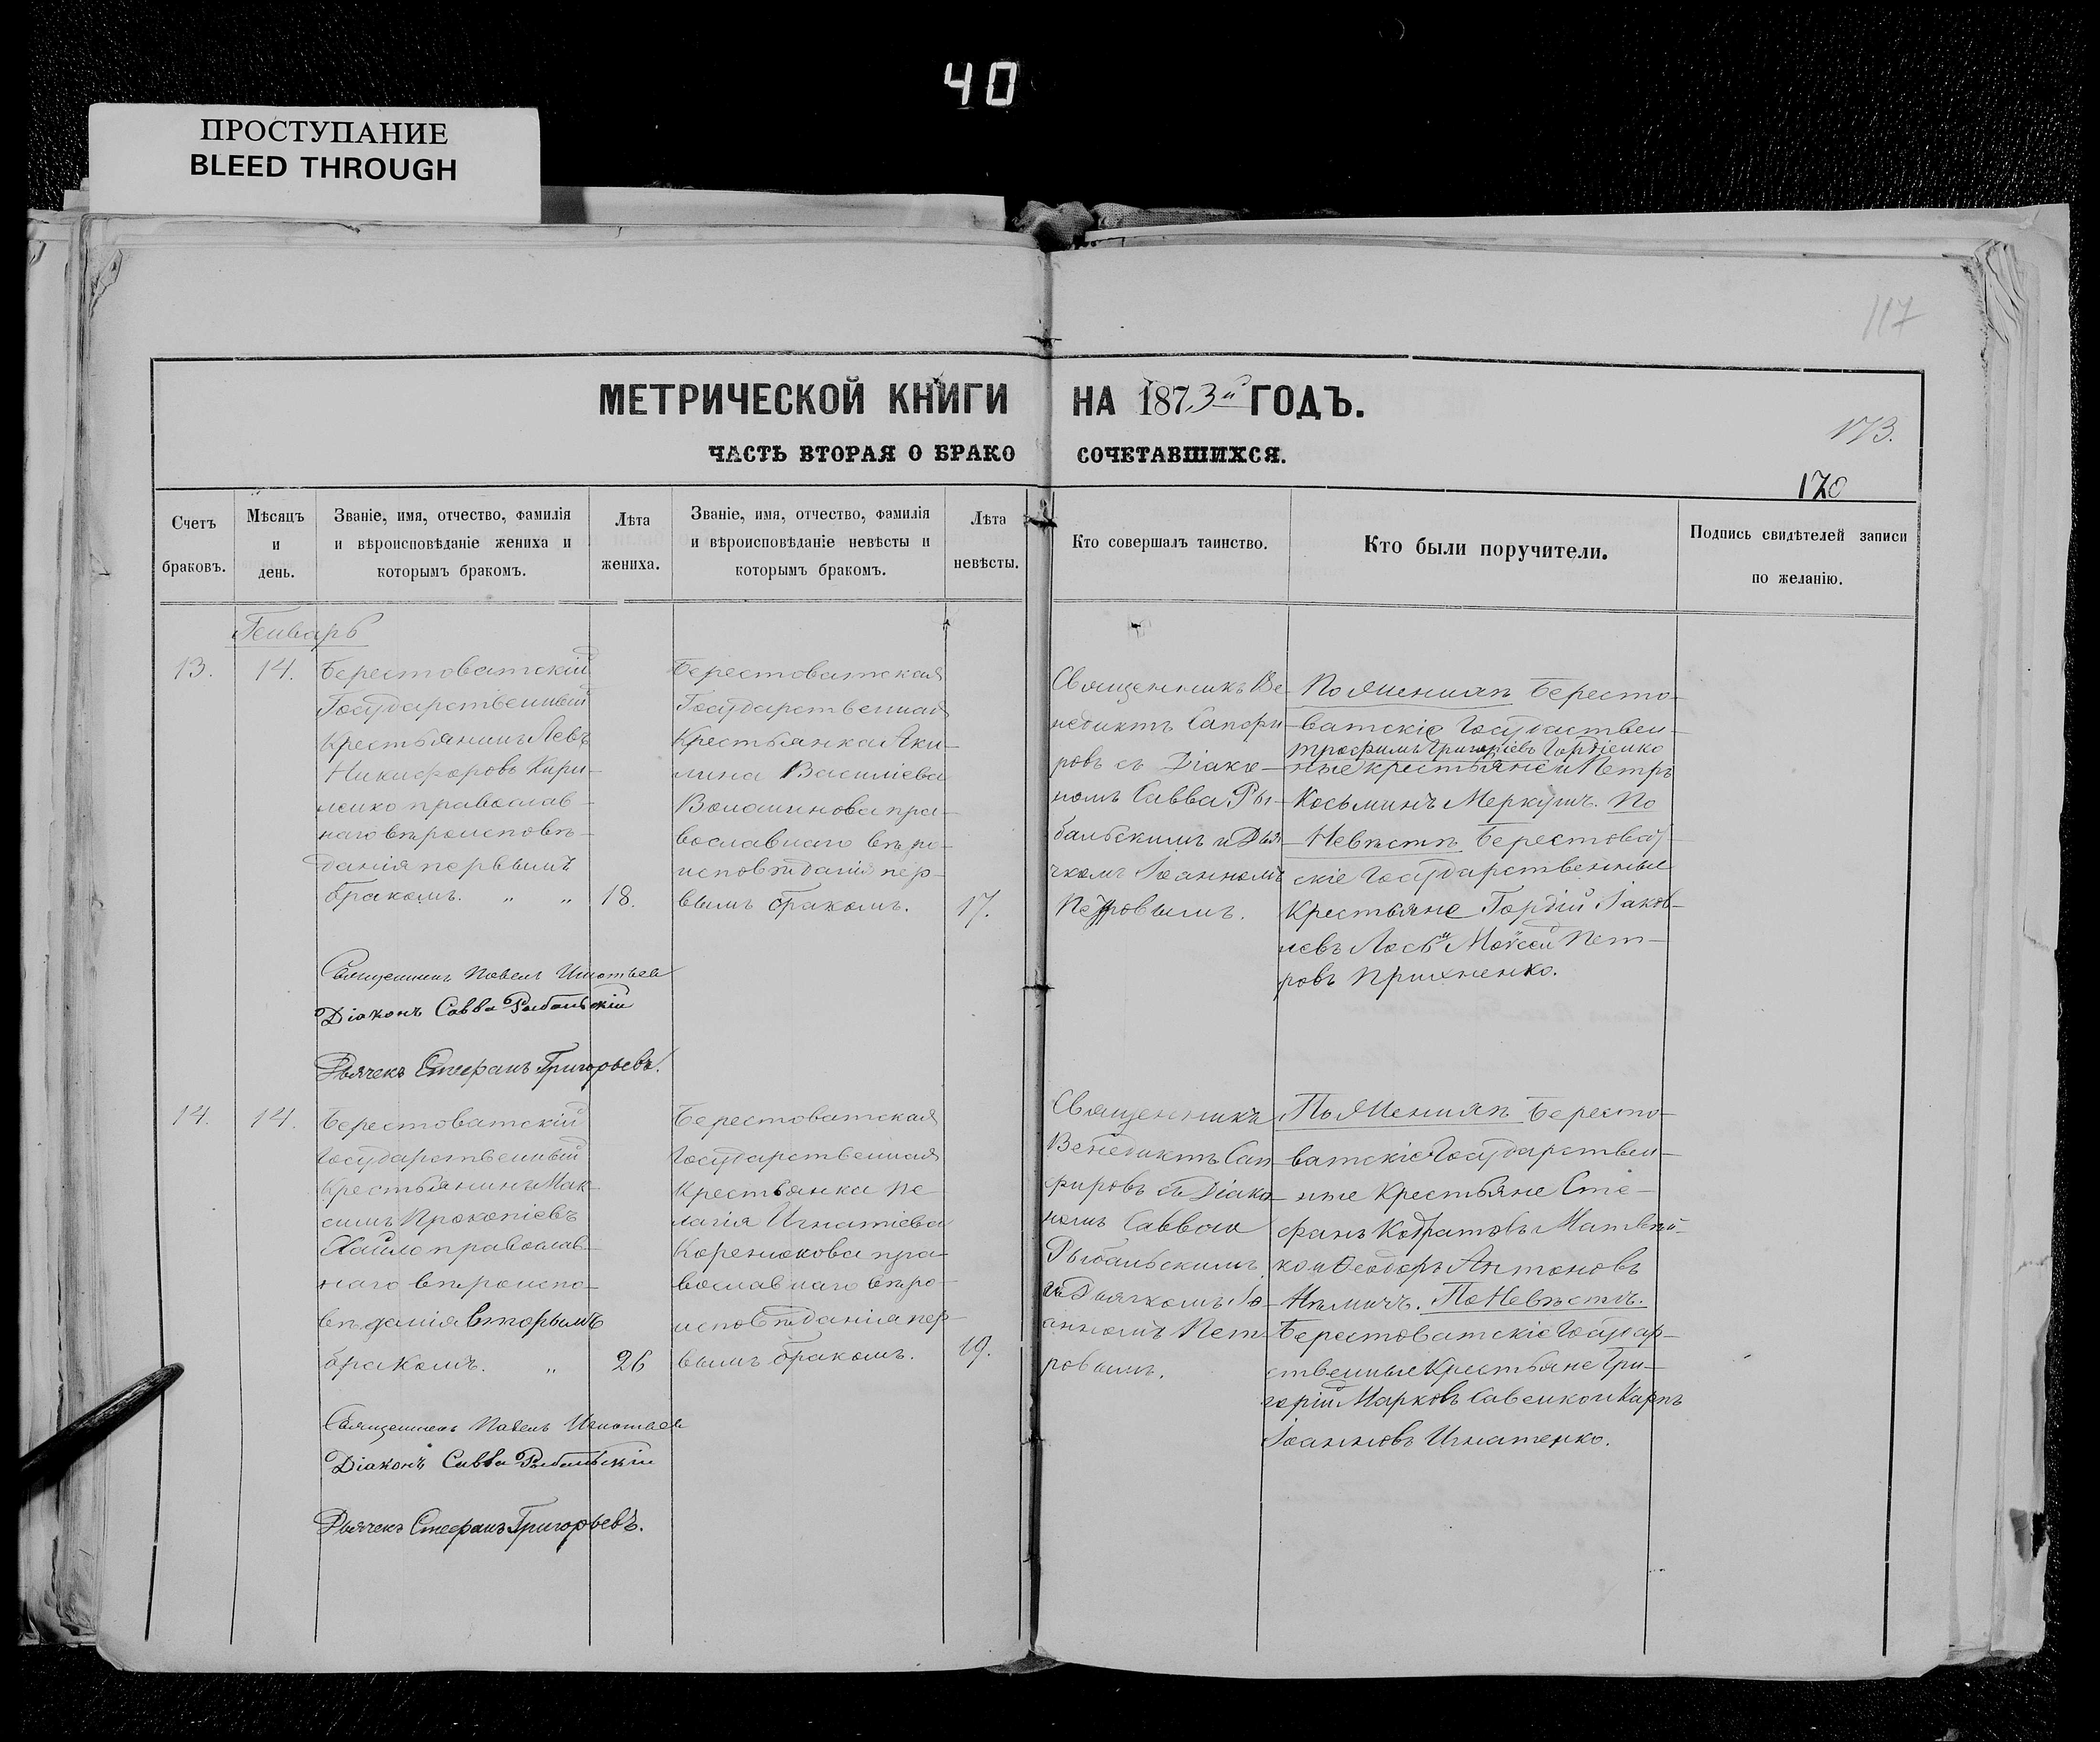 40
ПРОСТУПАНИЕ
BLEED THROUGH
117
МЕТРИЧЕСКОЙ КНИГИ НА 1873й ГОДЪ.
173.
ЧАСТЬ ВТОРАЯ О БРАКОСОЧЕТАВШИХСЯ.
170
Счетъ
браковъ.
Мѣсяцъ
и
день.
Званіе, имя, отчество, фамилія
и вѣроисповѣданіе жениха и
которымъ бракомъ.
Лѣта
жениха.
Званіе, имя, отчество, фамилія
и вѣроисповѣданіе невѣсты и
которымъ бракомъ.
Лѣта
невѣсты.
Кто совершалъ таинство.
Кто были поручители.
Подпись свидѣтелей записи
по желанію.
Генварь
13.
14.
Берестоватскій
Государственный
Крестьянинъ Левъ
Никифоровъ Кири-
ленко православ-
наго вѣроисповѣ-
данія первымъ
бракомъ. " "
18.
Берестоватская
Государственная
Крестьянка Аки-
лина Василіева
пра-
вославнаго вѣро-
исповѣданія пер-
вымъ бракомъ.
17.
Священникъ Ве-
недиктъ Сапфи-
ровъ съ Діако-
номъ Савва Ры-
бальскимъ и Дья-
чкомъ Іоанномъ
Петровымъ.
По Женихѣ Бересто-
ватскіе Государствен-
Трофимъ Григоріевъ Гордіенко
ные крестьяне и Петръ
Косьминъ Меркушъ. По
Невѣстѣ Берестоват-
скіе Государственные
Крестьяне Гордій Іаков-
левъ Лось и Мойсей Пет-
ровъ
Священникъ Павелъ Игнатьев
Діаконъ Савва Рыбальскій
Дьячекъ Стефанъ Григорьевъ.
14.
14.
Берестоватскій
Государственный
Крестьянинъ Мак-
симъ Прокопіевъ
Хайло православ-
наго вѣроиспо-
вѣданія вторымъ
бракомъ. "
26
Берестоватская
Государственная
Крестьянка Пе-
лагія Игнатіева
Коренюкова пра-
вославнаго вѣро-
исповѣданія пер-
вымъ бракомъ.
19.
Священникъ
Венедиктъ Сап-
фировъ съ Діако-
номъ Саввою
Рыбальскимъ
и Дьячкомъ Іо-
анномъ Пет-
ровымъ.
По Женихѣ Бересто-
ватскіе Государствен-
ные Крестьяне Сте-
фанъ Кодратовъ Матвѣй-
ко и Ѳеодоръ Антоновъ
Нѣмичъ. По Невѣстѣ.
Берестоватскіе Государ-
ственные Крестьяне Гри-
горій Марковъ Савенко и Карпъ
Іоанновъ Игнатенко.
Священникъ Павелъ Игнатьев
Діаконъ Савва Рыбальскій
Дьячекъ Стефанъ Григорьевъ.